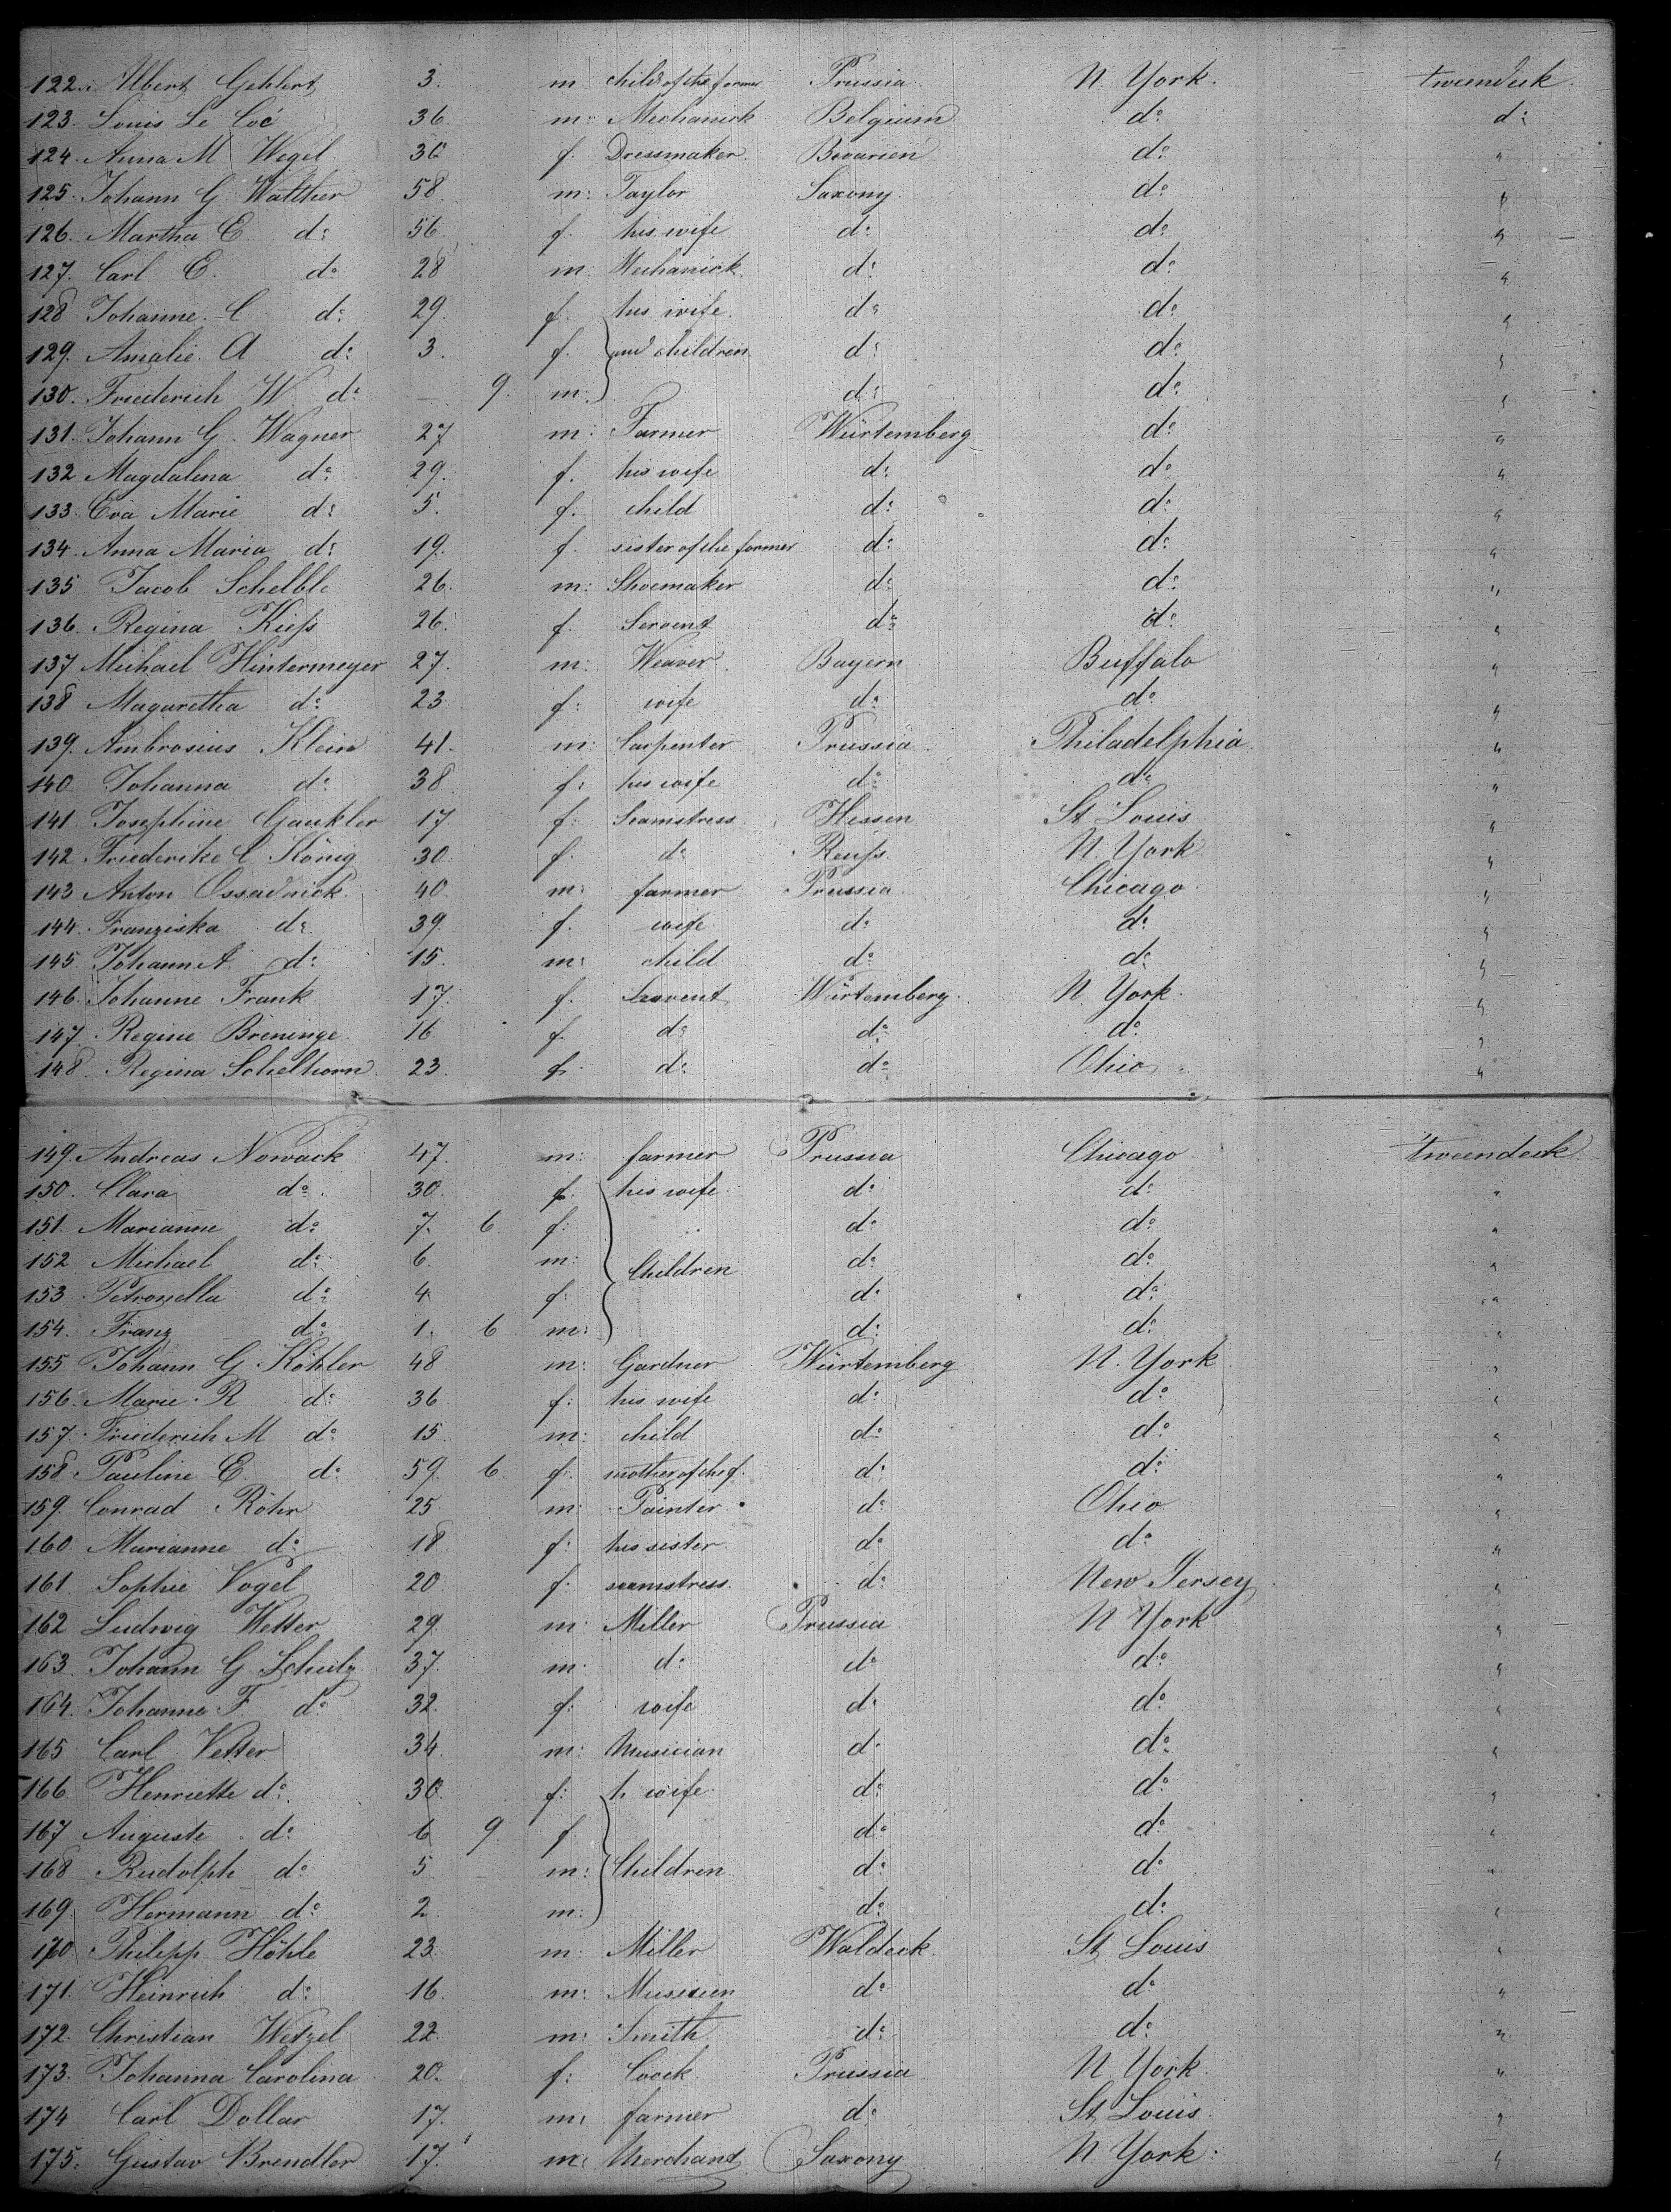 122. Albert Gehlert 3. m child of the former Prussia N. York. tweendeck
123. Louis Le Coé 36. m: Mechanick Belgium do do
124. Anna M Wegel 36 f. Dressmaker. Bavarien do "
125. Johann G Walther 58 m: Taylor Saxony do "
126. Martha E. do 56. f. his wife do do "
127. Carl E. do 28 m: Mechanick. do do "
128 Johanne C do 29. f. his wife. do do "
129. Amalie A do 3. f. and children do do "
130. Friederich W do – 9. m. do do "
131. Johann G. Wagner 27 m: Farmer Würtemberg do "
132 Magdalena do 29. f. his wife do do "
133. Eva Marie do 5. f. child do do "
134. Anna Maria do 19. f. sister of the former do do "
135 Jacob Schelble 26. m: Shoemaker do do "
136. Regina Kiess 26. f. Servent do do "
137 Michael Hintermeyer 27. m: Weaver. Bayern Buffalo "
138 Magaretha do 23 f: wife do do "
139. Ambrosius Klein 41. m: Carpenter Prussia Philadelphia "
140 Johanna do 38 f: his wife do do "
141 Josephine Gaukler 17 f: Seamstress Hessen St Louis "
142 Friederike C König 30 f. do Reuss N York "
143 Anton Ossadnick. 40 m: farmer Prussia Chicago "
144. Franziska do 39. f. wife do do "
145 Johann A. do 15. m: child do do "
146. Johanne Frank 17. f. Servent Würtemberg. N York. "
147. Regine Breninge. 16 f. do do do "
148. Regina Schelhorn 23. f. do do Ohio "
149. Andreas Nowack 47. m: farmer Prussia Chicago tweendeck
150. Clara do 30. f. his wife. do do "
151. Marianne do 7. 6 f: do do "
152 Michael do 6. m: Children do do "
153 Petronella do 4 f: do do "
154. Franz do 1. 6 m: do do "
155 Johann G. Köhler 48 m: Gardner Würtemberg N. York "
156. Marie R do 36 f: his wife do do "
157. Friederich M do 15. m: child do do "
158 Pauline E. do 59. 6 f. mother of the f. do do "
159. Conrad Röhr 25 m: Painter do Ohio "
160 Marianne do 18 f: his sister do do "
161. Sophie Vogel 20 f. seamstress. do New Jersey "
162 Ludwig Wetter 29. m: Miller Prussia N York "
163. Johann G Schulz 37. m. do do do "
164. Johanne F. do 32. f: wife do do "
165 Carl Vetter 34. m: Musician do do "
166. Henriette do 30. f: h. wife do do "
167 Auguste do 6 9. f do do "
168 Rudolph do 5 m: Children do do "
169. Hermann do 2. m: do do "
170 Philipp Höhle 23 m: Miller Waldeck St Louis "
171. Heinrich do 16. m: Musicien do do "
172. Christian Wetzel 22. m: Smith do do "
173. Johanna Carolina 20. f: Coock Prussia N York. "
174 Carl Dollar 17. m: farmer do St Louis. "
175. Gustav Brendler 17. m: Merchant Saxony N York. "